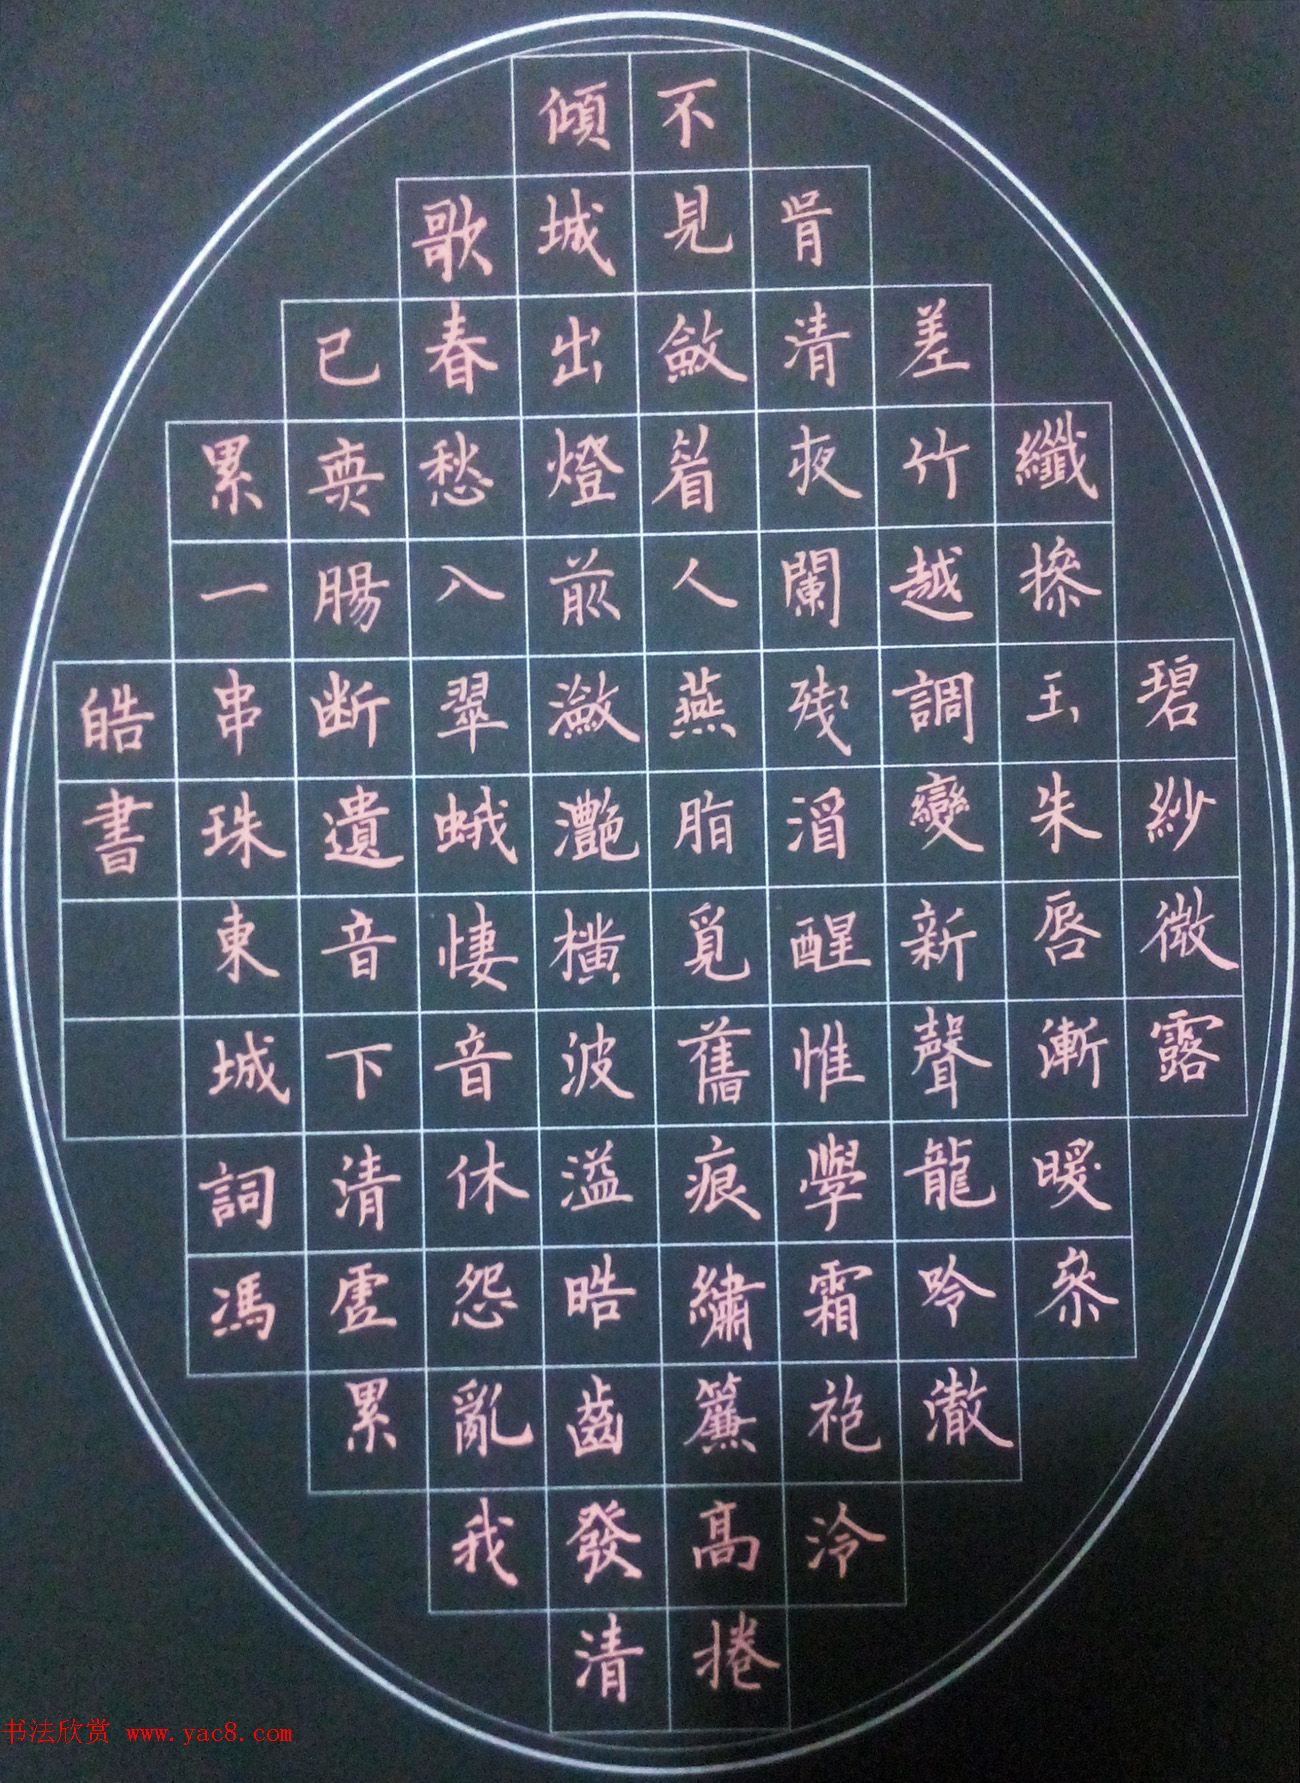 碧紗微露
纖摻玉朱唇漸暖參
差竹越調變新聲龍吟澈
骨清夜闌残酒醒惟覺霜袍冷
不見斂眉人燕脂覓舊痕繡簾高捲
傾城出燈前瀲灩橫波溢皓齒發清
歌春愁入翠蛾悽音休怨亂我
已無腸断遺音下清虛累
累一串珠東城詞馮
皓書
书法欣赏 www.yac8.com